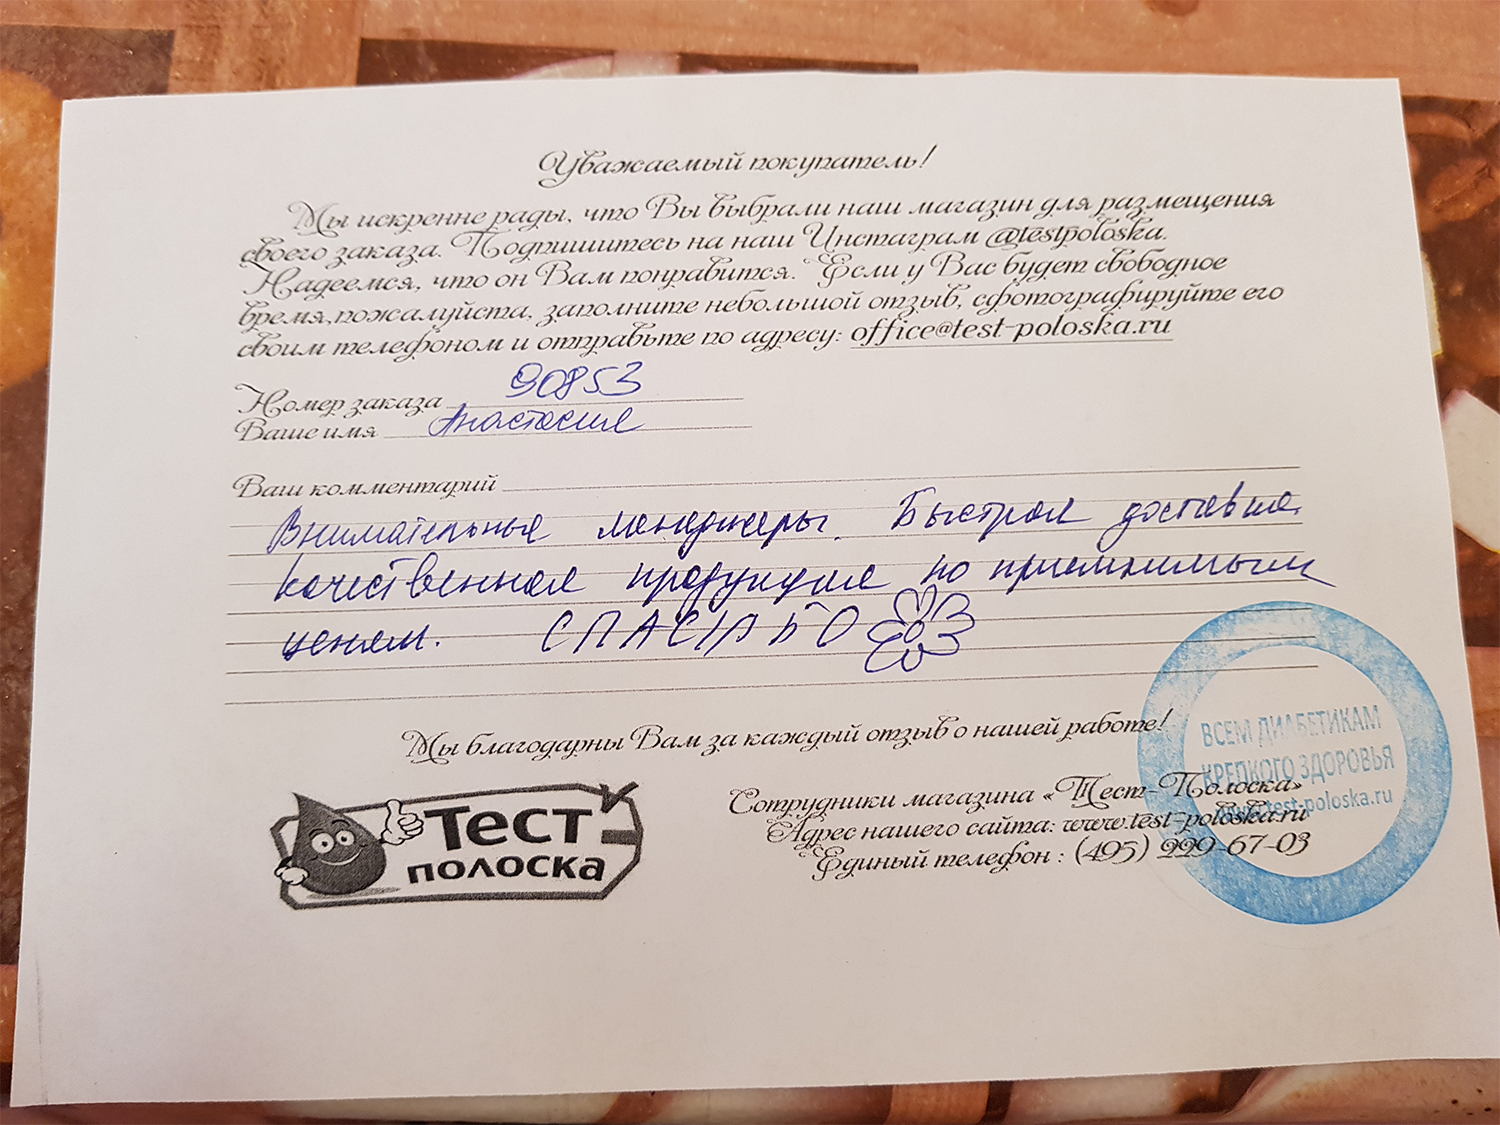 Уважаемый покупатель!
Мы искренне рады, что Вы выбрали наш магазин для размещения
своего заказа. Подпишитесь на наш Инстаграм @testpoloska.
Надеемся, что он Вам понравится. Если у Вас будет свободное
время,пожалуйста, заполните небольшой отзыв, сфотографируйте его
своим телефоном и отправьте по адресу: office@test-poloska.ru
Номер заказа 90853
Ваше имя Анастасия
Ваш комментарий
Внимательные менеджеры. Быстрая доставка.
качественная продукция по приемлимым
ценам. СПАСИБО
Мы благодарны Вам за каждый отзыв о нашей работе!
Тест
полоска
Сотрудники магазина «Тест-Полоска»
Адрес нашего сайта: www.test-poloska.ru
Единый телефон : (495) 229-67-03
ВСЕМ ДИАБЕТИКАМ
КРЕПКОГО ЗДОРОВЬЯ
www.test-poloska.ru